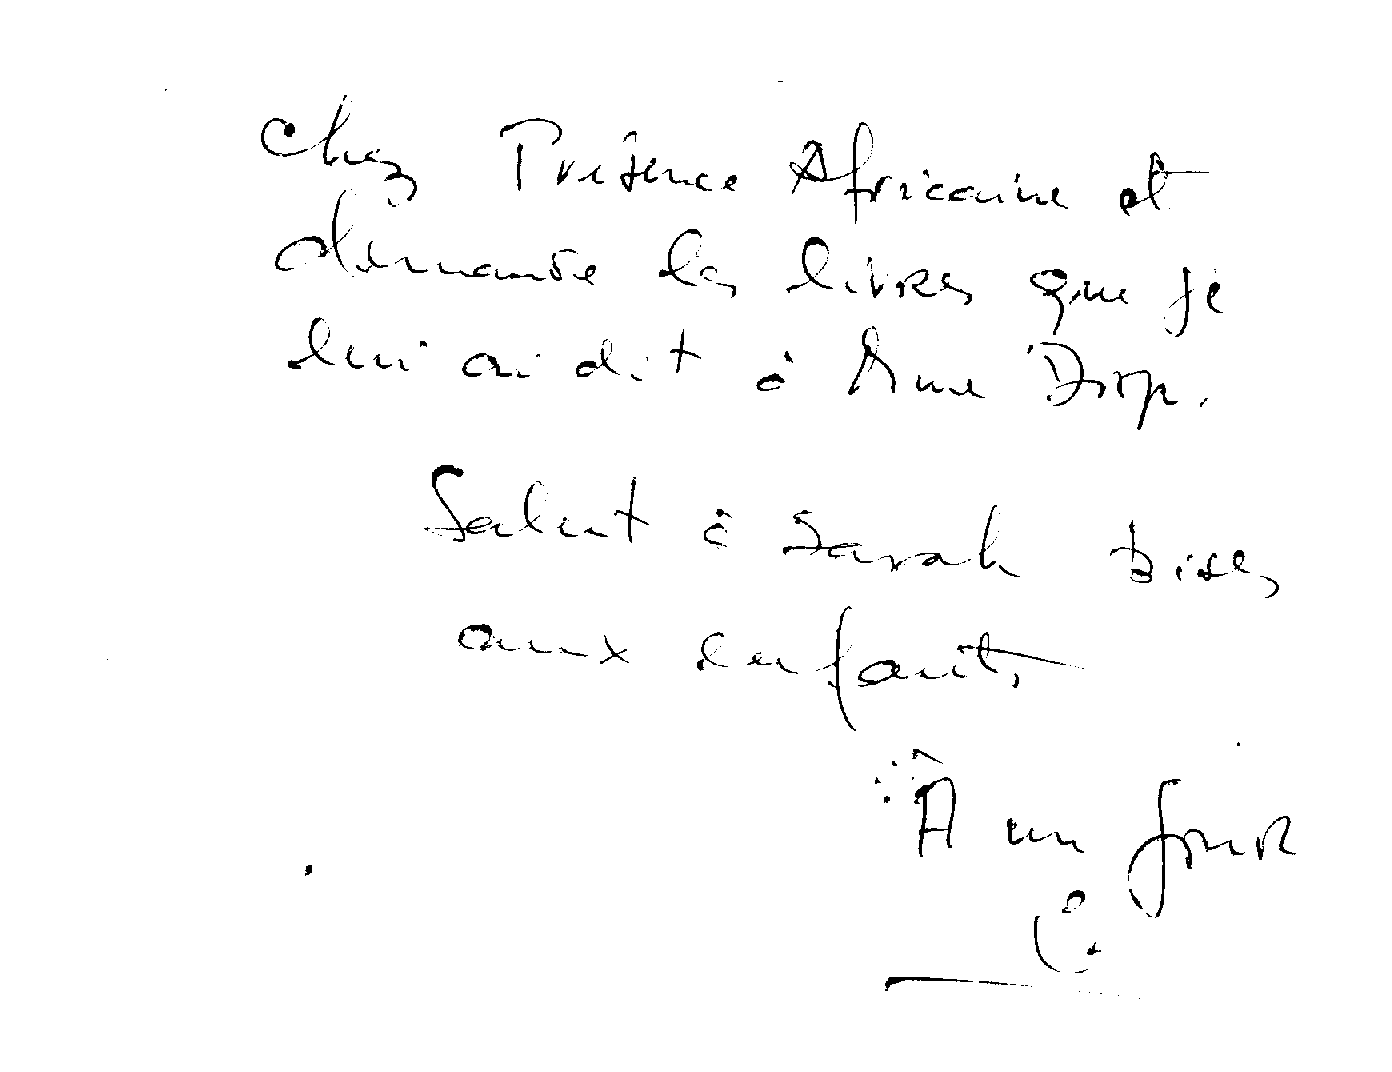 chez Présence Africaine et
demande les livres que je
lui ai dit à Mme Diop.
Salut à Sarah Bises
aux enfants
À un jour
C.